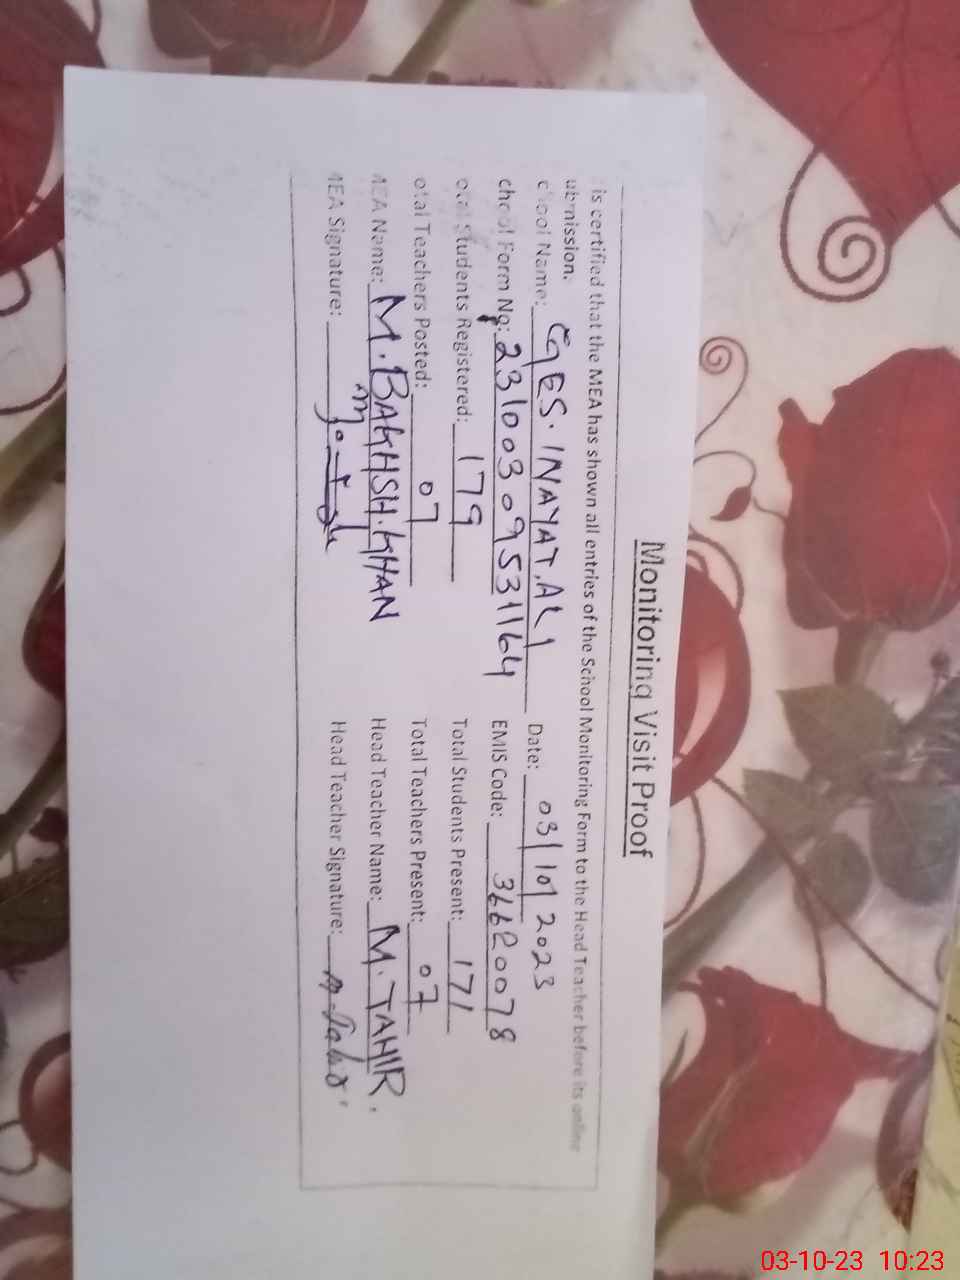 Monitoring Visit Proof
is certified that the MEA has shown all entries of the School Monitoring Form to the Head Teacher before its online
ubmission.
chool Name: GES. INAYAT. ALI Date: 03/10/2023
chool Form No: 2310030953164 EMIS Code: 36620078
otal Students Registered: 179 Total Students Present: 171
otal Teachers Posted: 07 Total Teachers Present: 07
MEA Name: M. BAKHSH. KHAN Head Teacher Name: M. TAHIR.
MEA Signature: Head Teacher Signature:
03-10-23 10:23